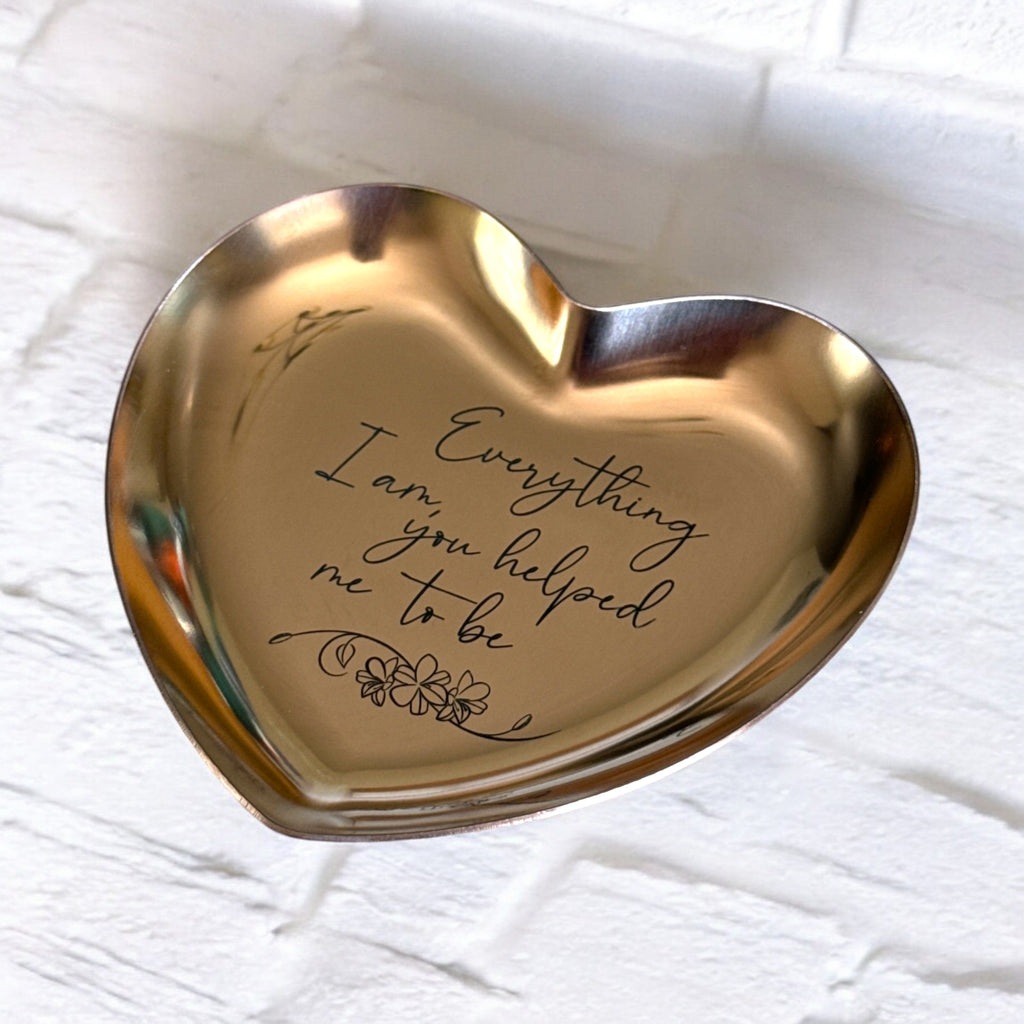 Everything
I am, you helped
me to be